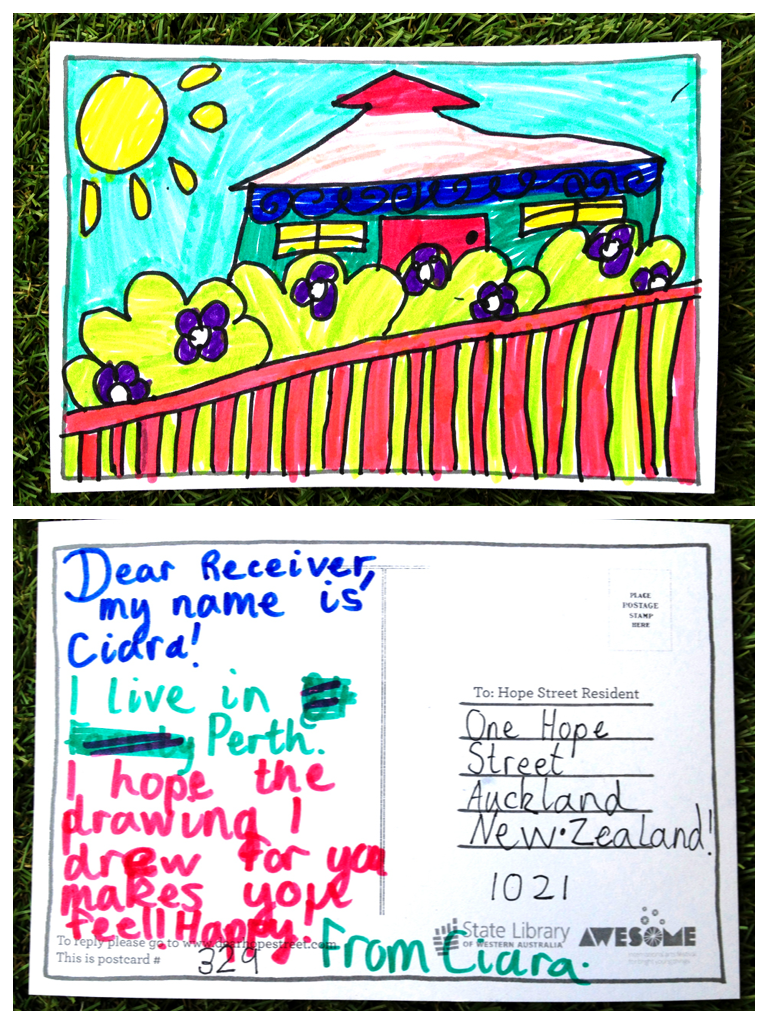 Dear Receiver,
my name is
Ciara!
I live in
Perth.
I hope the
drawing I
drew for you
makes you
feel! Happy!
To reply please go to www.dearhopestreet.com
This is postcard #
329
From Ciara.
PLACE
POSTAGE
STAMP
HERE
To: Hope Street Resident
One Hope
Street
Auckland
New·Zealand!
1021
State Library
OF WESTERN AUSTRALIA
AWESOME